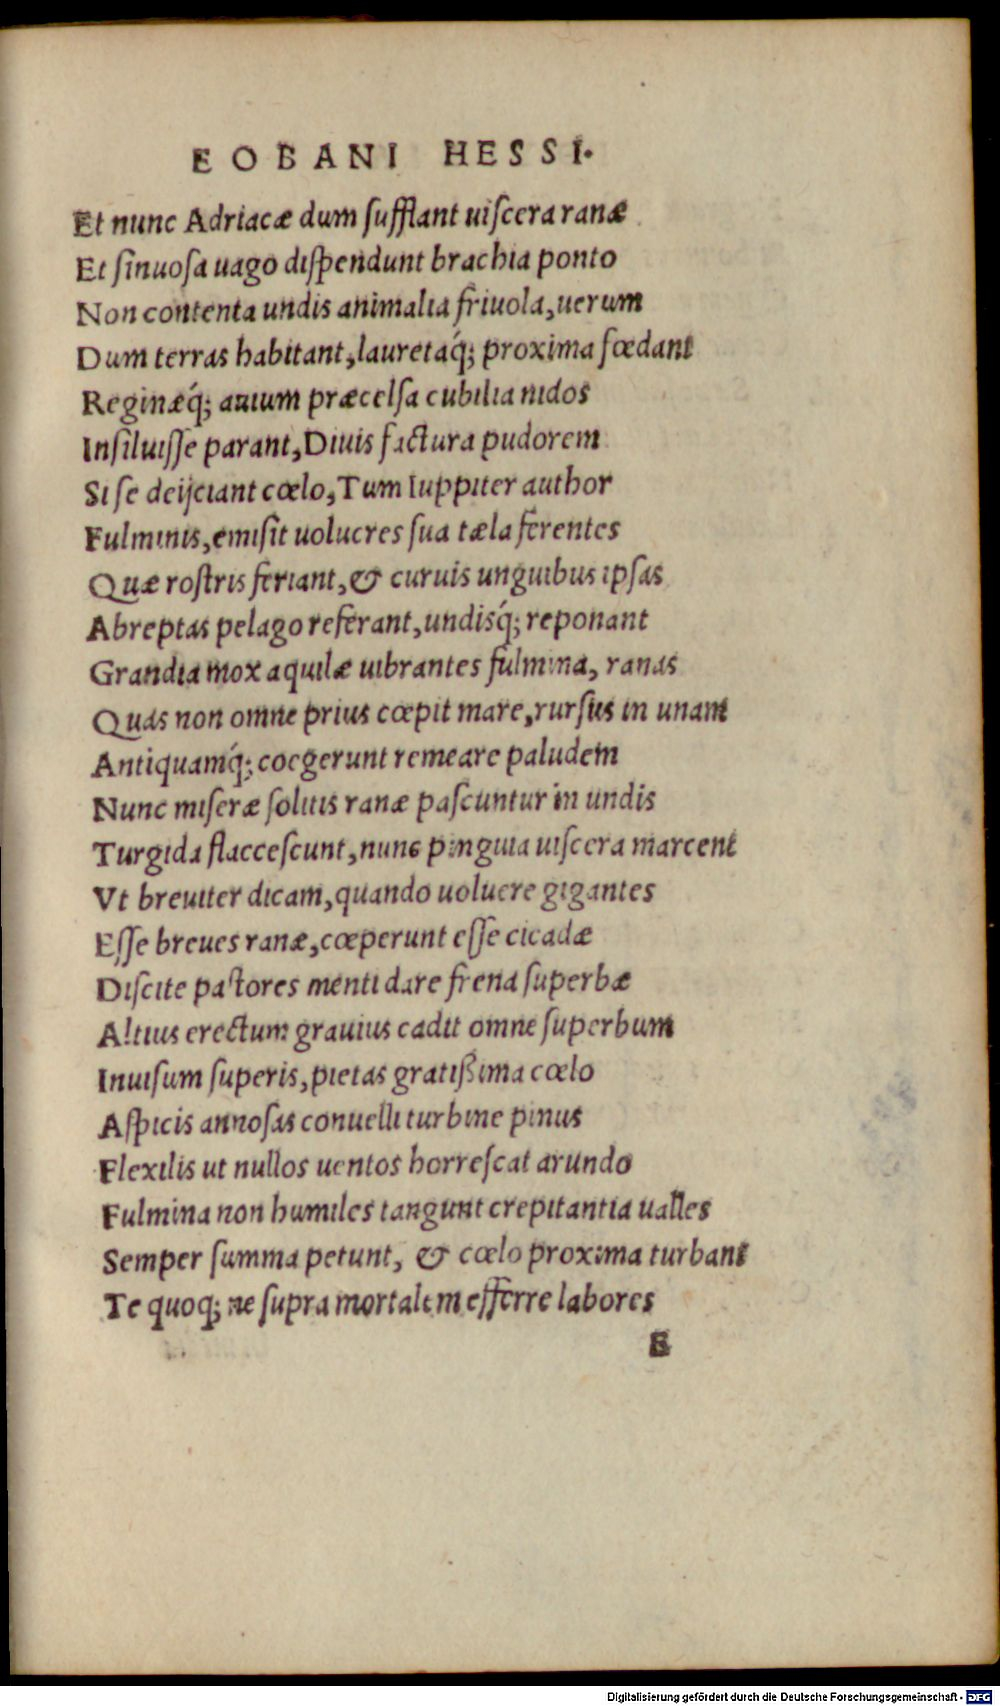 EOBANI HESSI.
Et nunc Adriacæ dum ſufflant uiſcera ranæ
Et ſinuoſa uago diſpendunt brachia ponto
Non contenta undis animalia friuola, uerum
Dum terras habitant, lauretaq́; proxima fœdant
Reginæq́; auium præcelſa cubilia nidos
Inſiluiſſe parant, Diuis factura pudorem
Si ſe deijciant cœlo, Tum Iuppiter author
Fulminis, emiſit uolucres ſua tæla ferentes
Quæ roſtris feriant, & curuis unguibus ipſas
Abreptas pelago referant, undisq́; reponant
Grandia mox aquilæ uibrantes fulmina, ranas
Quas non omne prius cœpit mare, rurſus in unam
Antiquamq́; coegerunt remeare paludem
Nunc miſeræ ſolitis ranæ paſcuntur in undis
Turgida flaccescunt, nunc pinguia uiſcera marcent
Vt breuiter dicam, quando uoluere gigantes
Eſſe breues ranæ, cœperunt eſſe cicadæ
Diſcite paſtores menti dare frena ſuperbæ
Altius erectum grauius cadit omne ſuperbum
Inuiſum ſuperis, pietas gratißima cœlo
Aſpicis annoſas conuelli turbine pinus
Flexilis ut nullos uentos horreſcat arundo
Fulmina non humiles tangunt crepitantia ualles
Semper ſumma petunt, & cœlo proxima turbant
Te quoq; ne ſupra mortalem efferre labores
E
Digitalisierung gefördert durch die Deutsche Forschungsgemeinschaft - DFG